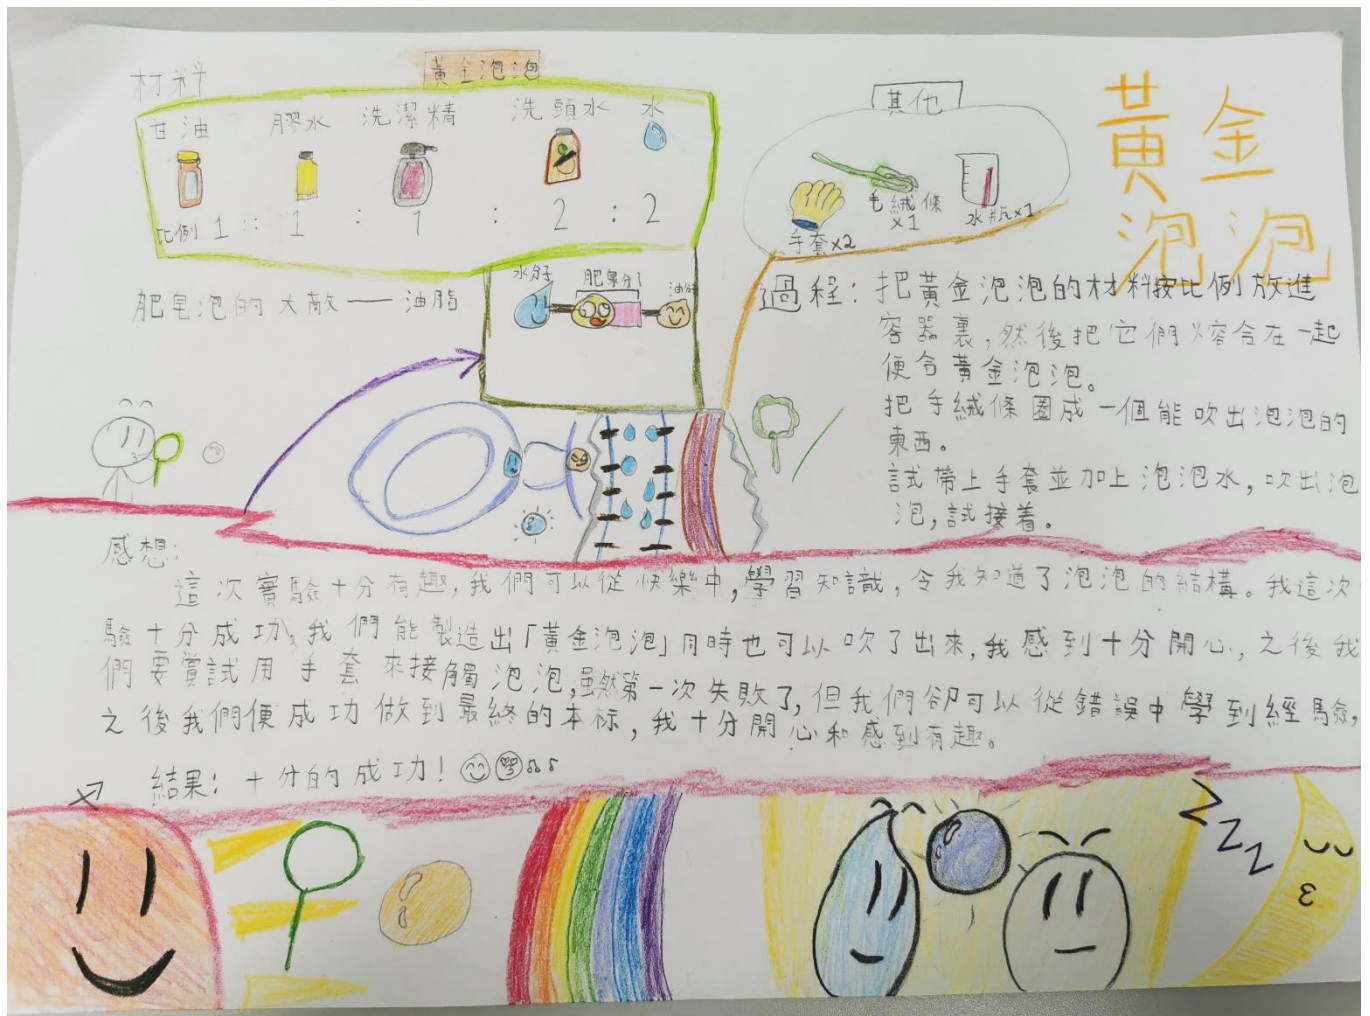 黃金泡泡
材料
黃金泡泡
甘油 膠水 洗潔精 洗頭水 水
比例 1 : 1 : 1 : 2 : 2
其他
手套x2
毛絨條
x1
水瓶x1
肥皂泡的大敵——油脂
水分子 肥皂分子 油分子
過程：把黃金泡泡的材料按比例放進
容器裏，然後把它們熔合在一起
便令黃金泡泡。
把手絨條圈成一個能吹出泡泡的
東西。
試帶上手套並加上泡泡水，吹出泡
泡，試接着。
感想：
這次實驗十分有趣，我們可以從快樂中，學習知識，令我知道了泡泡的結構。我這次
驗十分成功，我們能製造出「黃金泡泡」同時也可以吹了出來，我感到十分開心，之後我
們要嘗試用手套來接觸泡泡，雖然第一次失敗了，但我們卻可以從錯誤中學到經驗，
之後我們便成功做到最終的本标，我十分開心和感到有趣。
結果：十分的成功！
ZZZ